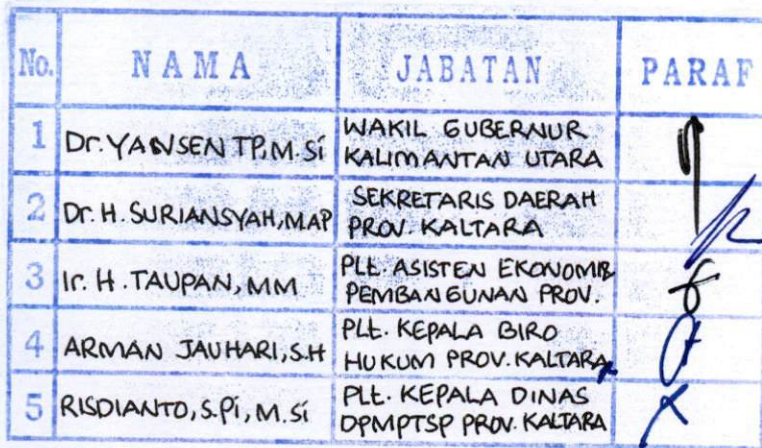 No. NAMA JABATAN PARAF
1 Dr. YANSEN TP, M.Si WAKIL GUBERNUR
KALIMANTAN UTARA
2 Dr. H. SURIANSYAH, MAP SEKRETARIS DAERAH
PROV. KALTARA
3 Ir. H. TAUPAN, MM PLt. ASISTEN EKONOMI &
PEMBANGUNAN PROV.
4 ARMAN JAUHARI, S.H PLt. KEPALA BIRO
HUKUM PROV. KALTARA
5 RISDIANTO, S.Pi, M.Si PLt. KEPALA DINAS
DPMPTSP PROV. KALTARA